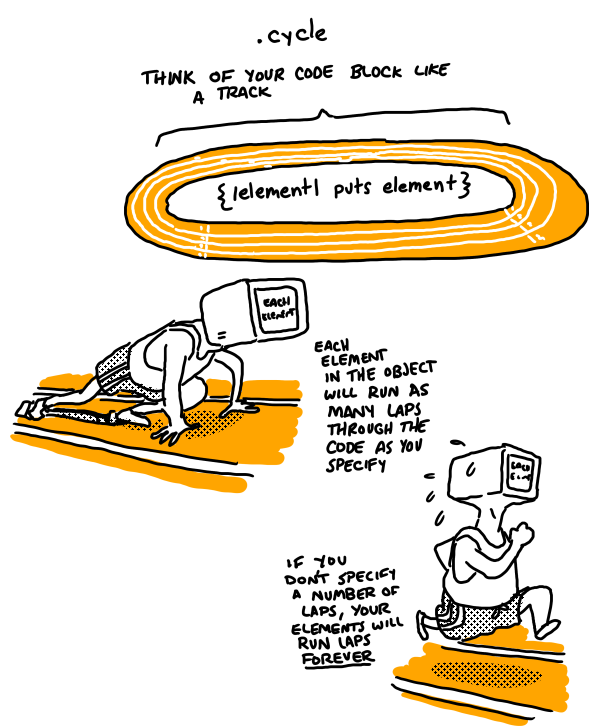 .cycle
THINK OF YOUR CODE BLOCK LIKE
A TRACK
{|element| puts element}
EACH
ELEMENT
EACH
ELEMENT
IN THE OBJECT
WILL RUN AS
MANY LAPS
THROUGH THE
CODE AS YOU
SPECIFY
EACH
IF YOU
DON'T SPECIFY
A NUMBER OF
LAPS, YOUR
ELEMENTS WILL
RUN LAPS
FOREVER